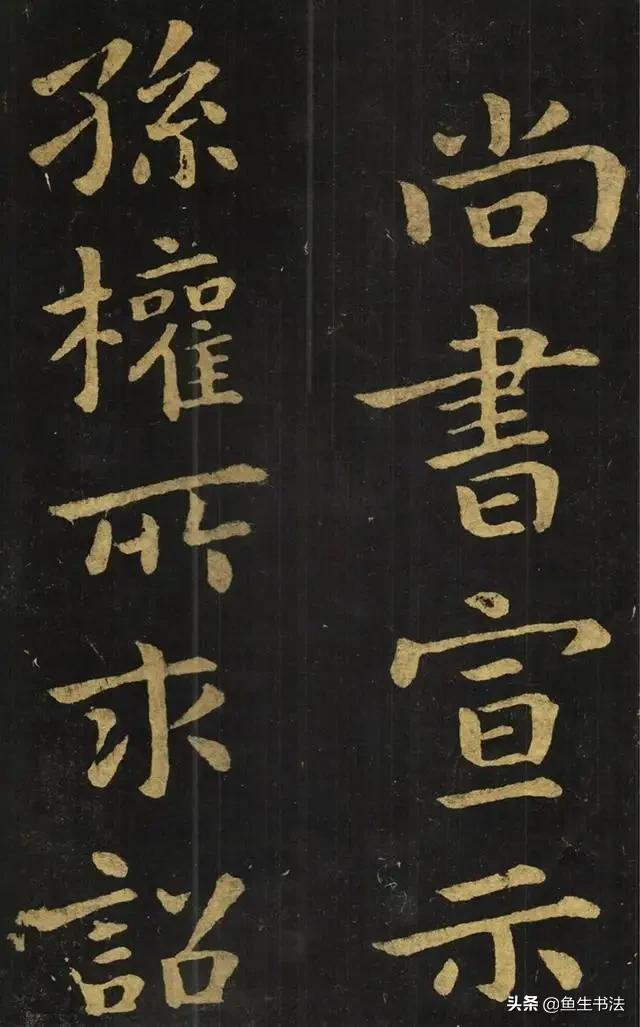 尚書宣示
孫權所求詔
头条 @鱼生书法